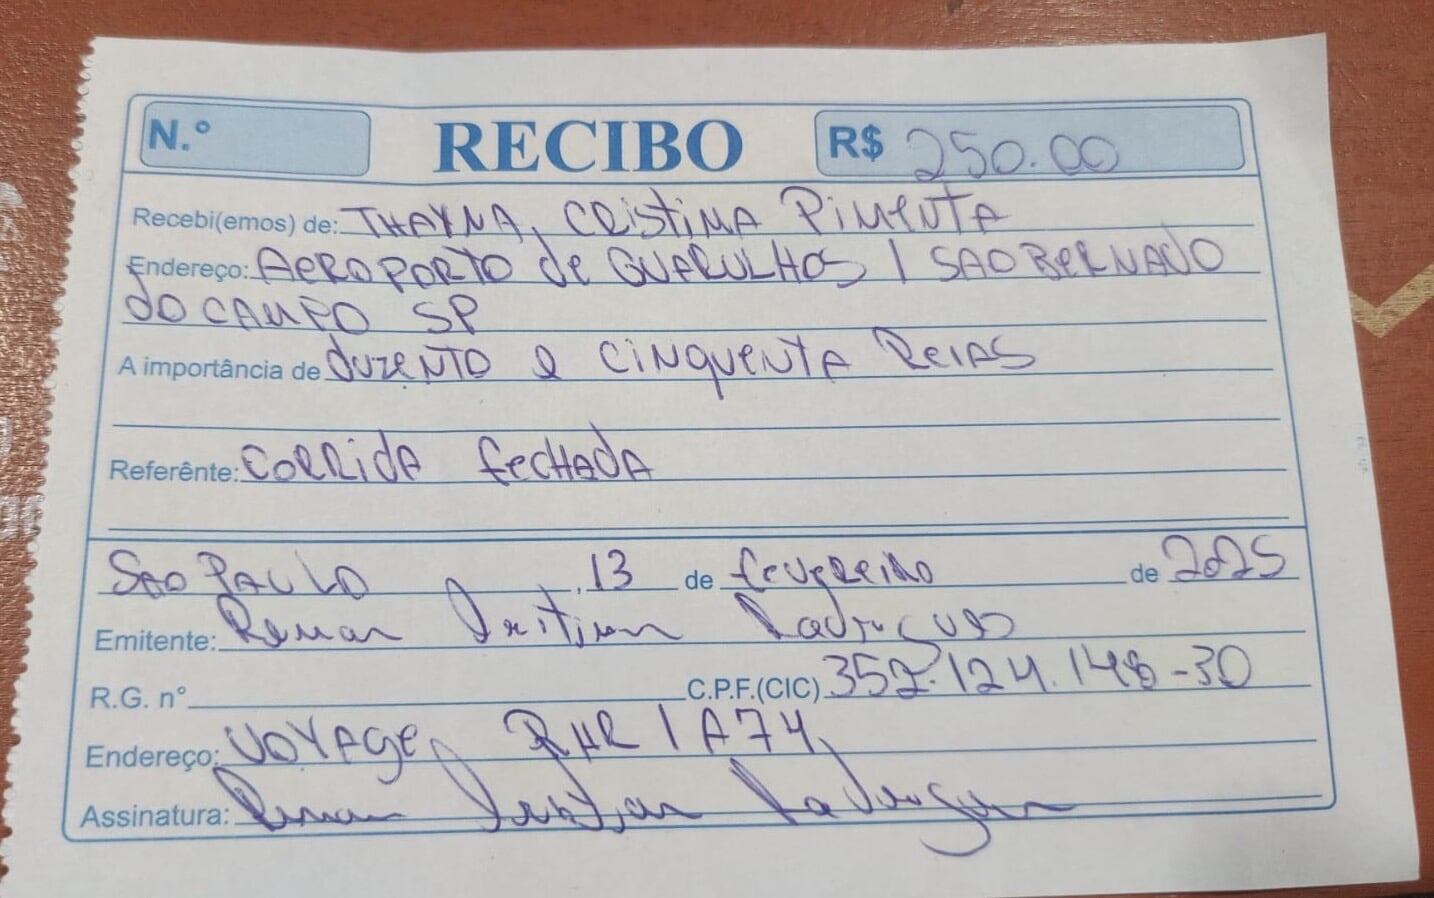 N.º RECIBO R$ 250.00
Recebi(emos) de: THAYNA, CRISTINA PIMENTA
Endereço: AEROPORTO de GUARULHOS / SAO BERNADO
do CAMPO SP
A importância de duzento e CINQUENTA REIAS
Referênte: CORRIDA fecHADA
SAO PAULO, 13 de fevereiro de 2025
Emitente: Renan
R.G. nº C.P.F.(CIC) 352.124.148-30
Endereço: VOYAGE, RHR 1A74,
Assinatura: Renan